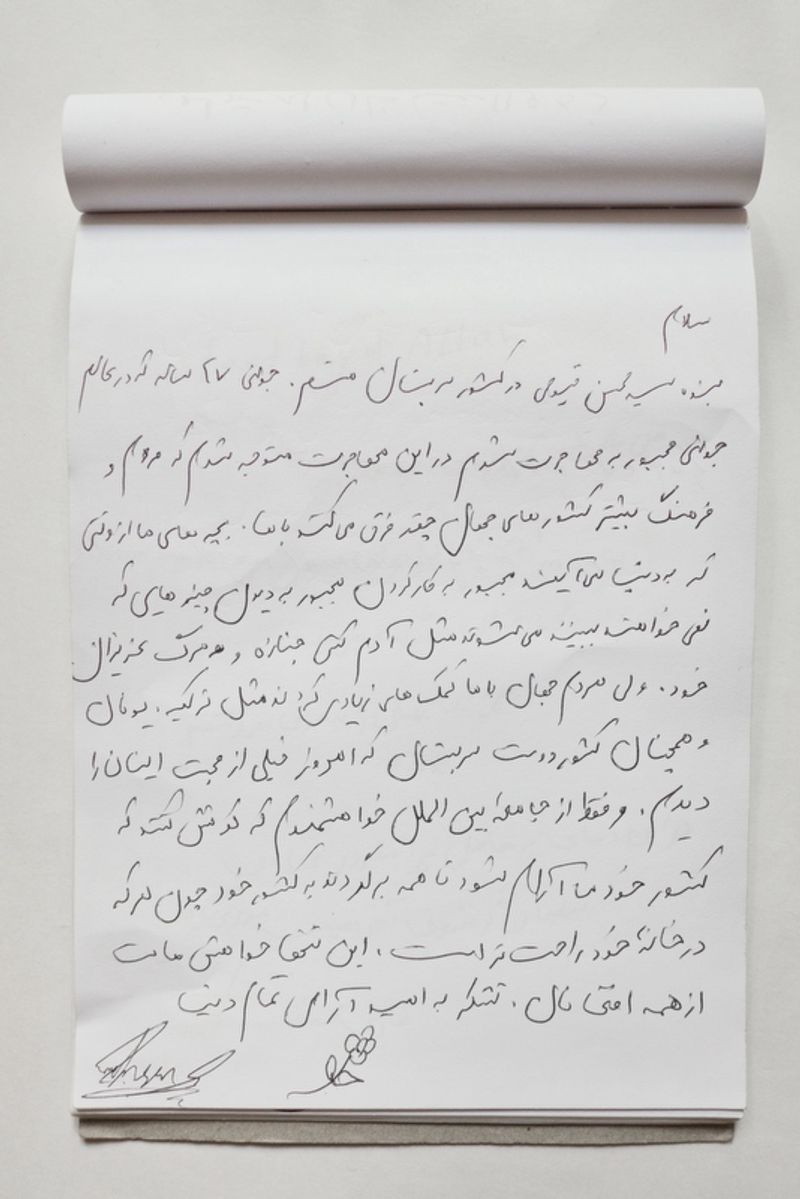 سلام
بنده سید محسن قیومی در کشور صربستان هستم. جوانی ۲۷ ساله که در عالم
جوانی مجبور به مهاجرت شدم در این مهاجرت متوجه شدم که مردم و
فرهنگ بیشتر کشورهای جهان چقدر فرق می‌کند با ما. بچه های ما از وقتی
که به دنیا می‌آیند مجبور به کار کردن مجبور به دیدن چیزهایی که
نمی خواهند ببینند می‌شوند مثل آدم کشی جنازه و مرگ عزیزان
خود. ولی مردم جهان با ما کمک های زیادی کردند مثل ترکیه. یونان
و همچنان کشور دوست صربستان که امروز خیلی از محبت ایشان را
دیدم. و فقط از جامعه بین المللی خواهشمندم که کوشش کنند که
کشور خود ما آرام شود تا همه برگردند به کشور خود چون هرکه
در خانهٔ خود راحت تر است. این تنها خواهش ماست
از همه افتی مال. تشکر به امید آرامی تمام دنیا
Mohsen